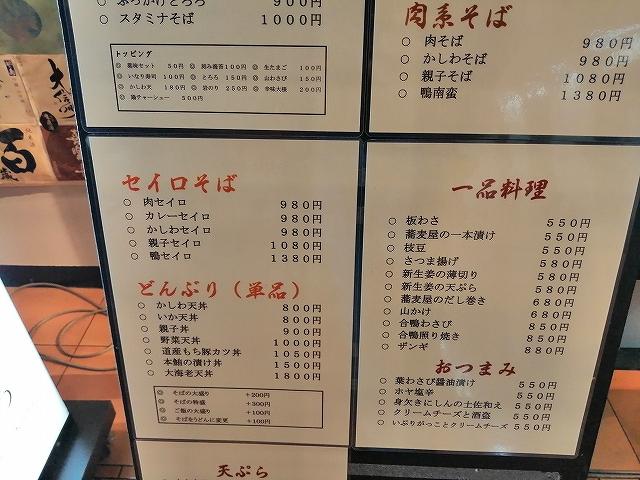 ぶっかけとろろ 900円
スタミナそば 1000円
トッピング
◎ 薬味セット 50円 ◎ 刻み海苔100円 ◎ 生たまご 100円
◎ いなり寿司 100円 ◎ とろろ 150円 ◎ 山わさび 150円
◎ かしわ天 180円 ◎ 岩のり 250円 ◎ 辛味大根 200円
◎ 鶏チャーシュー 500円
肉系そば
○ 肉そば 980円
○ かしわそば 980円
○ 親子そば 1080円
○ 鴨南蛮 1380円
セイロそば
○ 肉セイロ 980円
○ カレーセイロ 980円
○ かしわセイロ 980円
○ 親子セイロ 1080円
○ 鴨セイロ 1380円
どんぶり（単品）
○ かしわ天丼 800円
○ いか天丼 800円
○ 親子丼 900円
○ 野菜天丼 1000円
○ 道産もち豚カツ丼 1050円
○ 本鮪の漬け丼 1500円
○ 大海老天丼 1800円
◎ そばの大盛り +200円
◎ そばの特盛 +300円
◎ ご飯の大盛り +100円
◎ そばをうどんに変更 +100円
天ぷら
一品料理
○ 板わさ 550円
○ 蕎麦屋の一本漬け 550円
○ 枝豆 550円
○ さつま揚げ 580円
○ 新生姜の薄切り 580円
○ 新生姜の天ぷら 580円
○ 蕎麦屋のだし巻き 680円
○ 山かけ 680円
○ 合鴨わさび 850円
○ 合鴨照り焼き 850円
○ ザンギ 880円
おつまみ
○ 葉わさび醤油漬け 550円
○ ホヤ塩辛 550円
○ 身欠きにしんの土佐和え 550円
○ クリームチーズと酒盗 550円
○ いぶりがっことクリームチーズ 550円